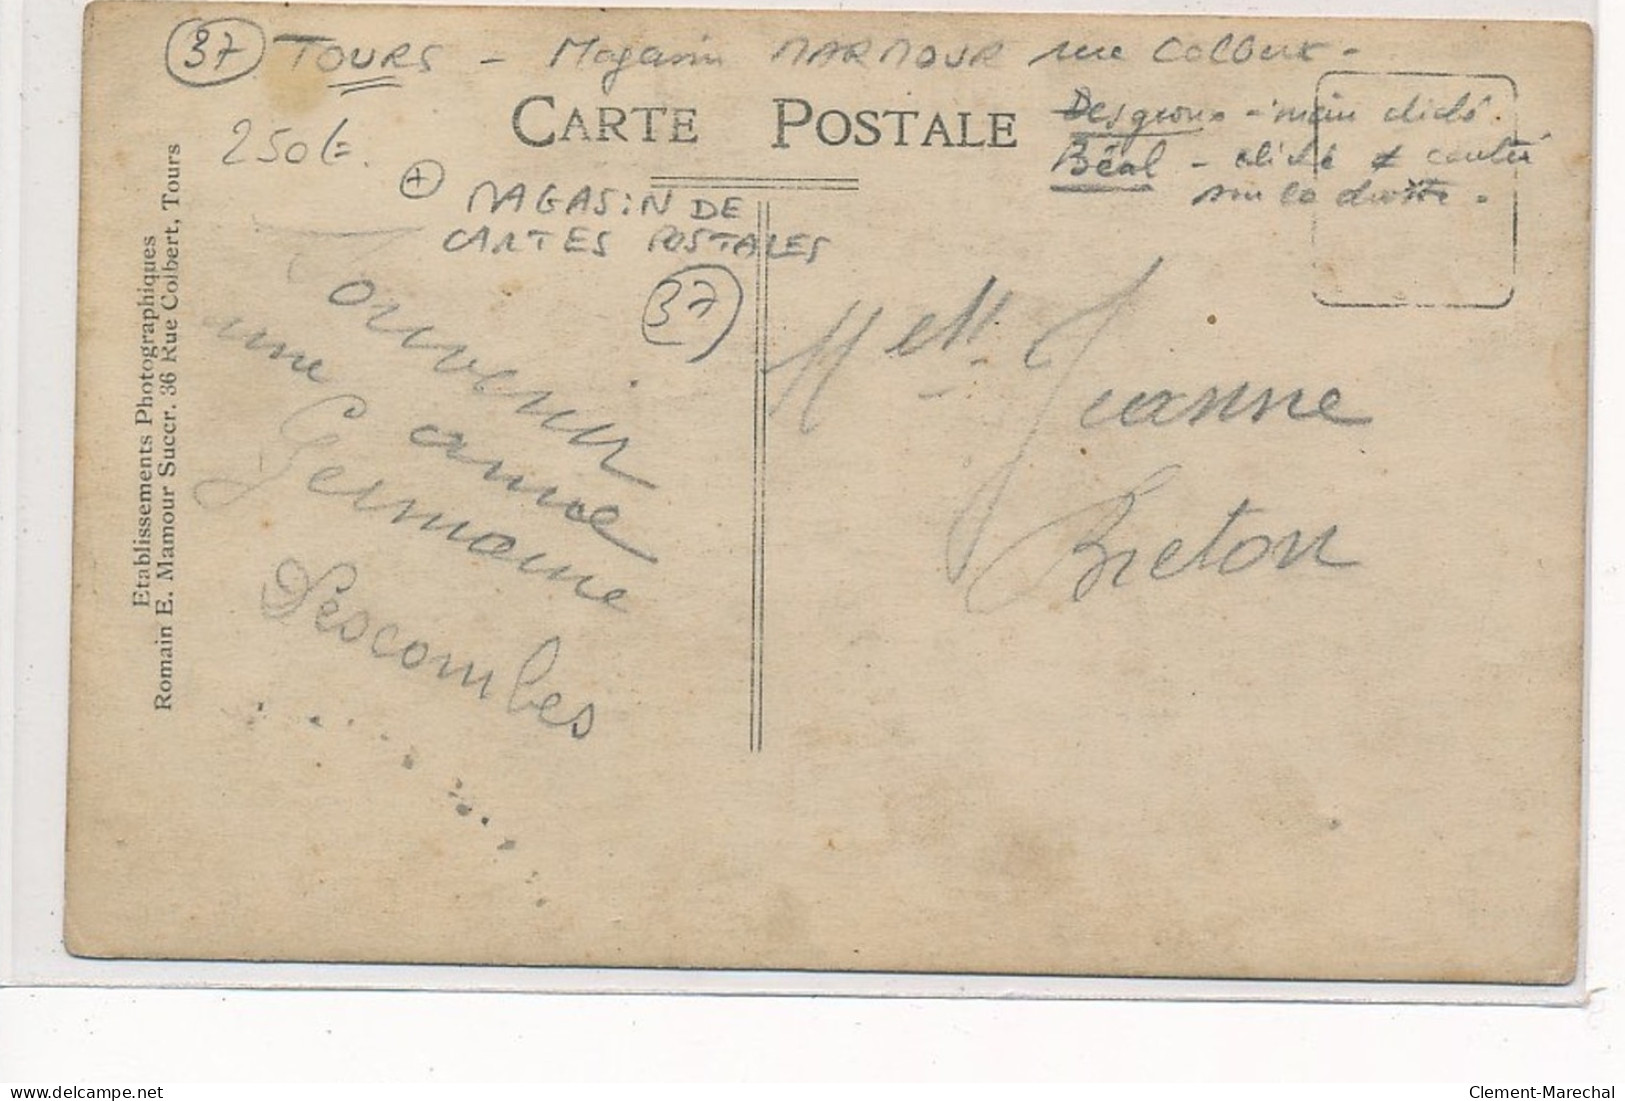 37 TOURS - Magasin MARMOUR rue Colbert -
CARTE POSTALE
250 E.
Desgrous - main cliché.
Béal - cliché ≠ centré
sur la droite.
+ MAGASIN DE
CARTES POSTALES
37
Etablissements Photographiques
Romain E. Mamour Succr. 36 Rue Colbert, Tours
Souvenir
une amie
Germaine
Descombes
Melle Jeanne
Breton
Clement-Marechal
delcampe.net